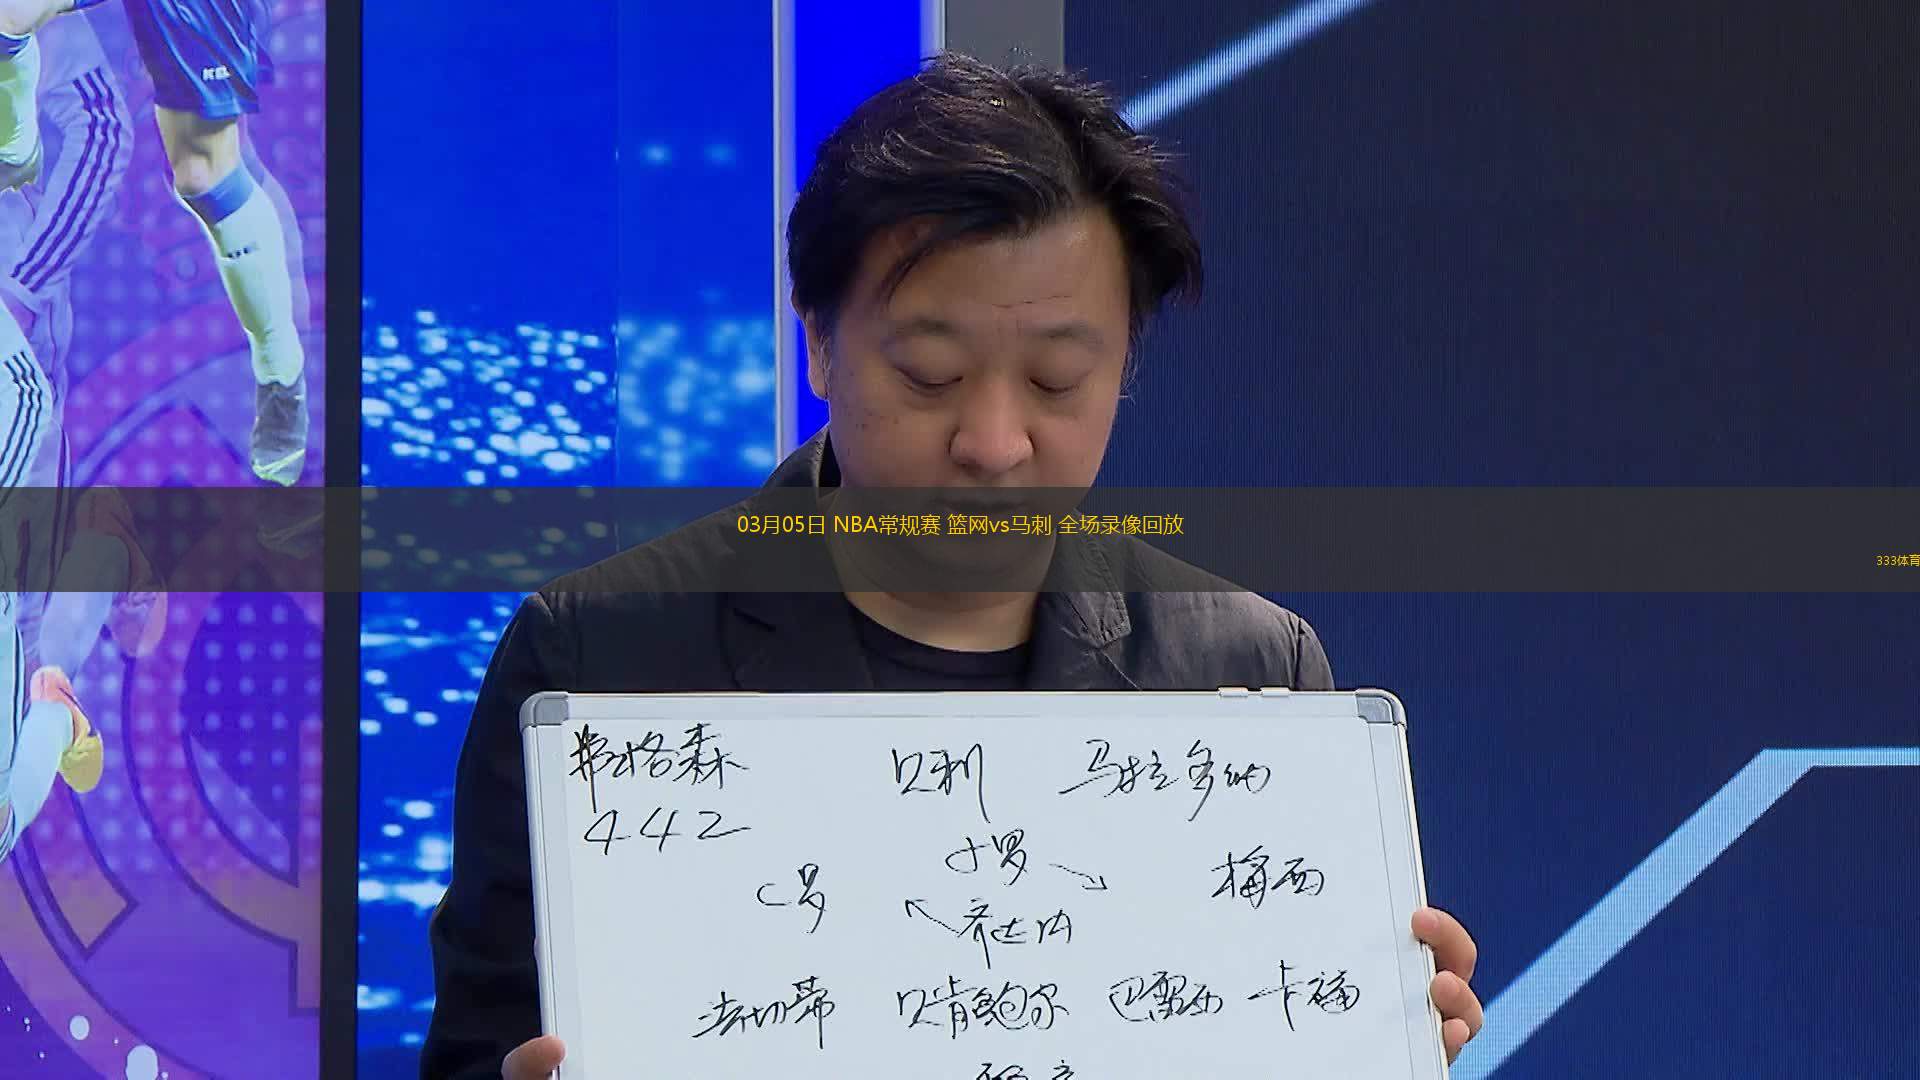 03月05日 NBA常规赛 篮网vs马刺 全场录像回放
333体育
弗格森 贝利 马拉多纳
442
小罗
C罗 梅西
齐达内
法切蒂 贝肯鲍尔 巴雷西 卡福